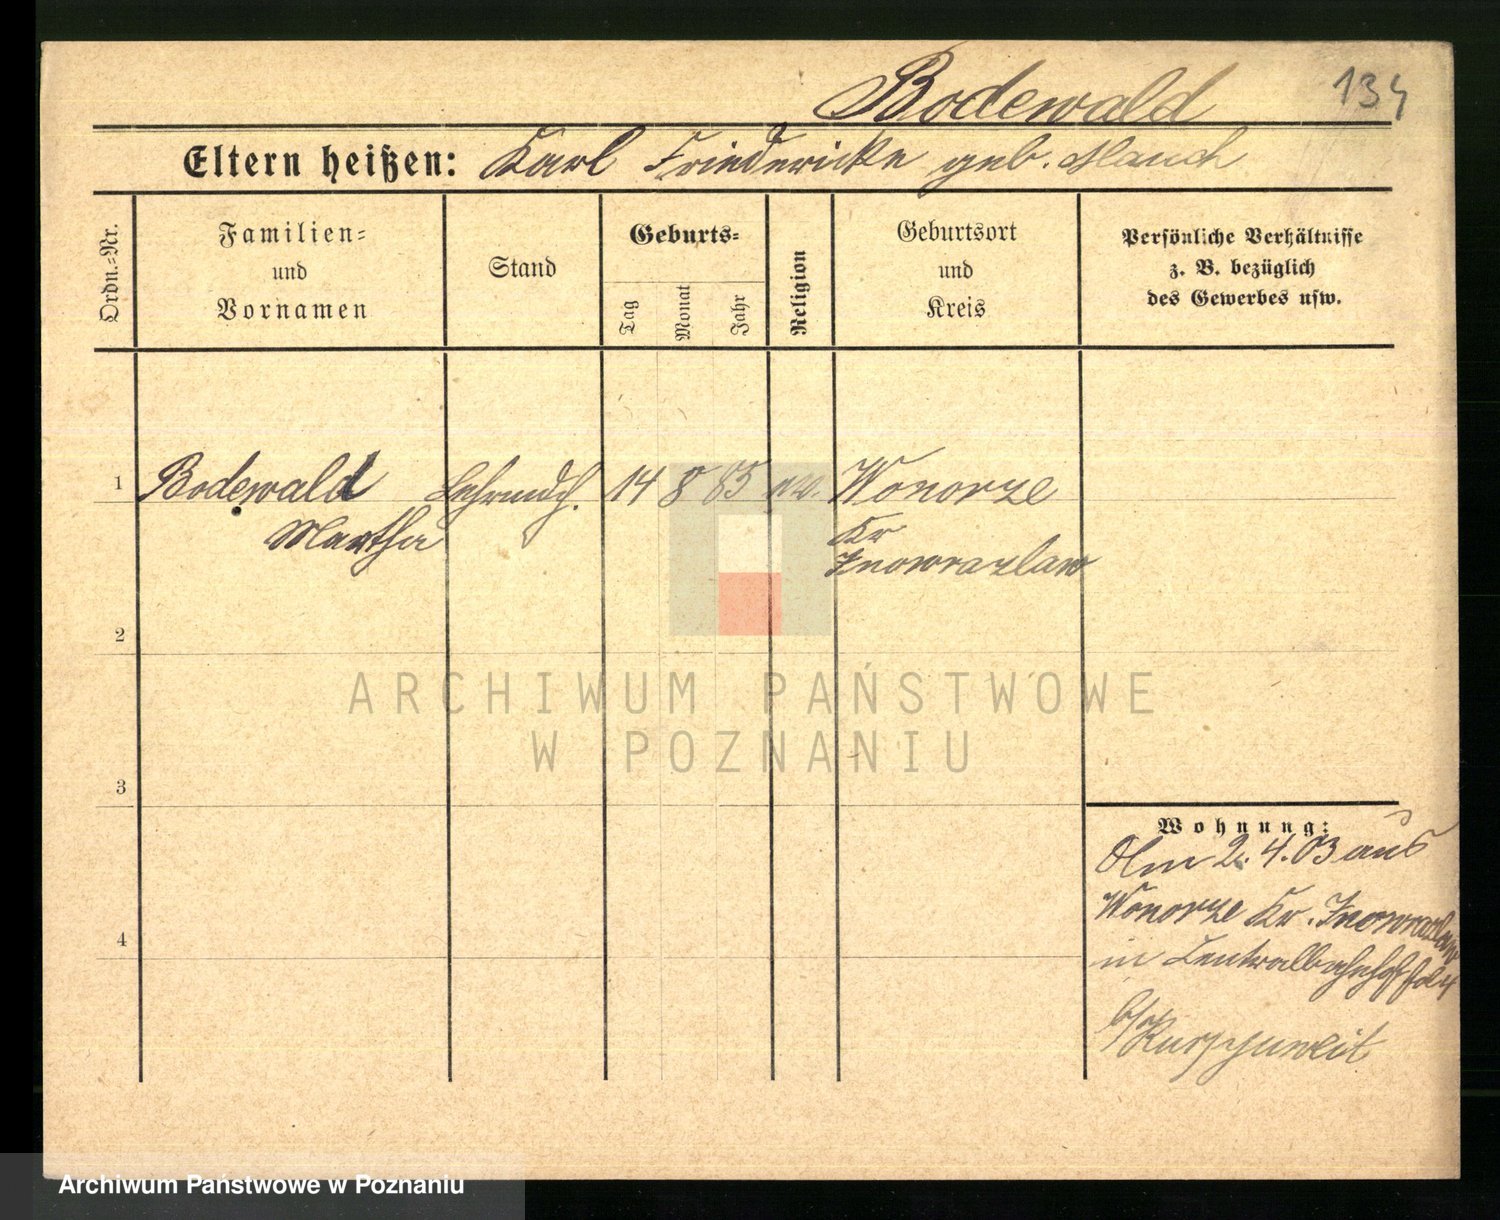 Bodewald
134
Eltern heißen: Karl Friedericke geb. Mauch
Ordn.=Nr.
Familien=
und
Vornamen
Stand
Geburts=
Tag
Monat
Jahr
Religion
Geburtsort
und
Kreis
Persönliche Verhältnisse
z. B. bezüglich
des Gewerbes usw.
1
Bodewald
Martha
Lehrmdch.
14
8
85
ev.
Wonorze
Kr
Inowrazlaw
2
3
4
Wohnung:
Am 2.4.03 aus
Wonorze Kr. Inowrazlaw
in Centralbahnhof
b/
ARCHIWUM PAŃSTWOWE
W POZNANIU
Archiwum Państwowe w Poznaniu